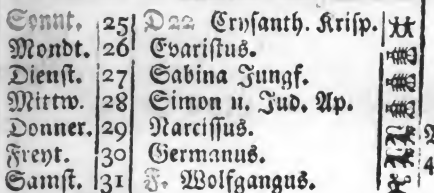 Sonnt. 25 D 22 Crysanth. Krisp.
Mondt. 26 Evaristus.
Dienst. 27 Sabina Jungf.
Mittw. 28 Simon u. Jud. Ap.
Donner. 29 Narcissus.
Freyt. 30 Germanus.
Samst. 31 F. Wolfgangus.